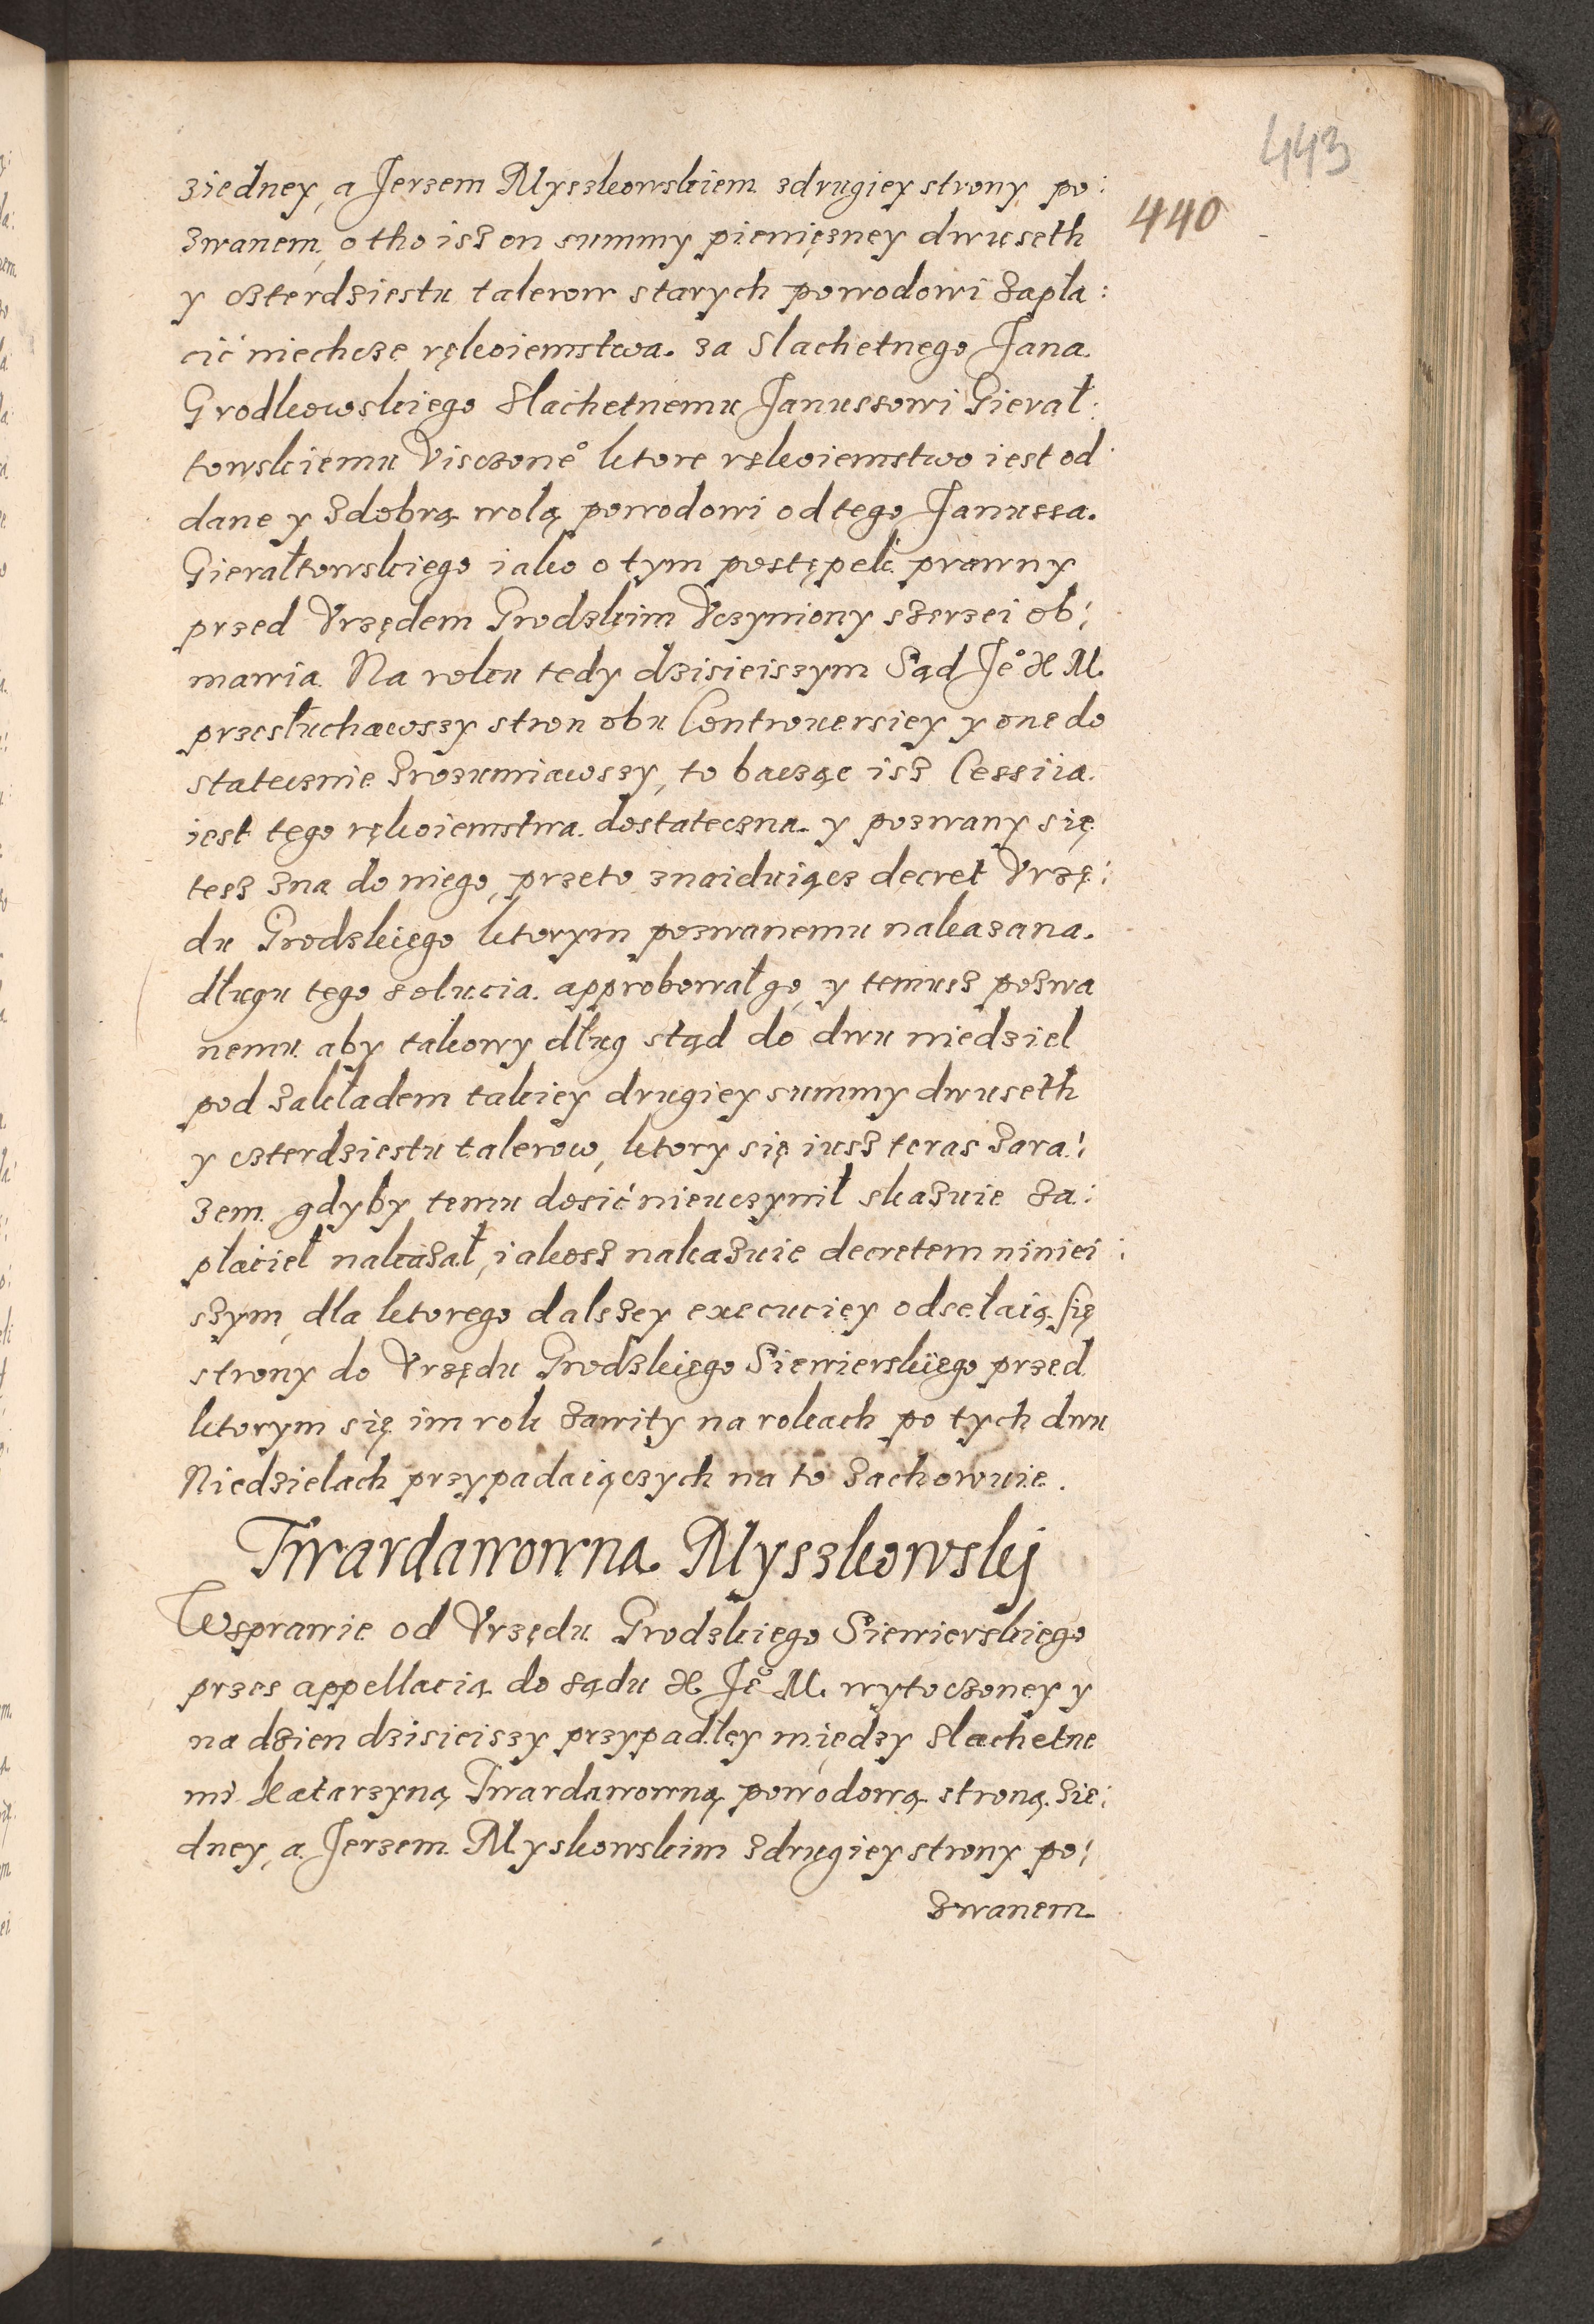 443
440
ziedney, a Jerzem Myszkowskiem zdrugiey strony po:
zwanem, o tho isz on summy pienięzney dwuseth
y czterdziestu talerow starych powodowi zapła:
cić niechcze rękoiemstwa za Slachetnego Jana
Grodkowskiego Slachetnemu Janussowi Gierał:
towskiemu Visczoneo ktore rękoiemstwo iest od
dane y zdobrą wolą powodowi od tego Janussa
Gierałtowskiego iako o tym postępek prawny
przed Vrzędem Grodzkim Vczyniony szerzei ob:
mawia. Na roku tedy dzisieiszym Sąd Jeo X M.
przesłuchawszy stron obu Controuersiey y one do
statecznie zrozumiawszy, to bacząc isz Cessiia
iest tego rękoiemstwa dostateczna y pozwany się
tesz zna do niego, przeto znaiduiącz decret Vrzę:
du Grodzkiego ktorym pozwanemu nakazana
długu tego solucia approbował go, y temusz pozwa
nemu aby takowy dług stąd do dwu niedziel
pod zakładem takiey drugiey summy dwuseth
y czterdziestu talerow, ktory się iusz teras zara:
zem, gdyby temu dosić nieuczynił skazuie za:
płacieł nakazał, iakosz nakazuie decretem niniei:
szym, dla ktorego dalszey execuciey odsełaią się
strony do Vrzędu Grodzkiego Siewierskiego przed
ktorym się im rok zawity na rokach po tych dwu
Niedzielach przypadaiączych na to zachowuie.
Twardawowna Myszkowskj
Wsprawie od Vrzędu Grodzkiego Siewierskiego
przes appellacią do sądu X Jeo M. wytoczoney y
na dzien dzisieiszy przypadłey między Slachetne
mi Katarzyną Twardawowną powodową stroną zie:
dney, a Jerzem Myskowskim zdrugiey strony po:
zwanem